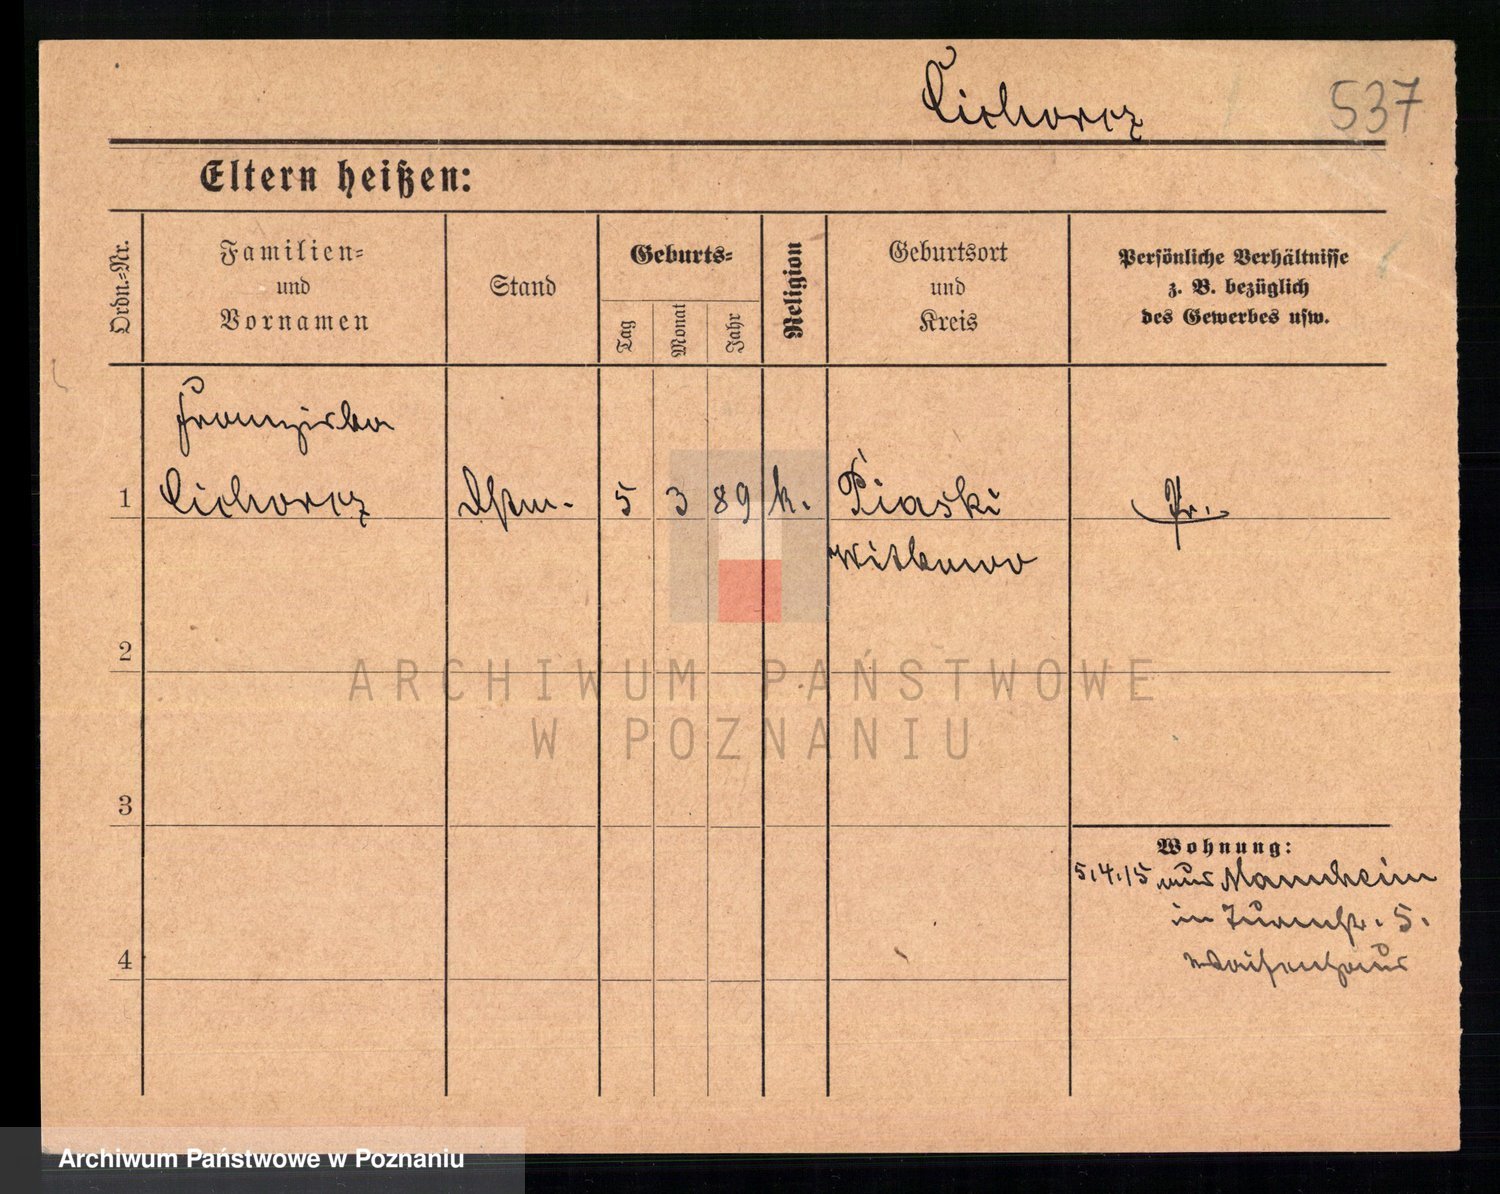 Cichorcz 537
Eltern heißen:
Ordn.-Nr.
Familien-
und
Vornamen
Stand
Geburts-
Tag
Monat
Jahr
Religion
Geburtsort
und
Kreis
Persönliche Verhältnisse
z. B. bezüglich
des Gewerbes usw.
Franziska
1 Cichorcz 5 3 89 k. Piaski Pr.
Witkowo
2
3
Wohnung:
5.4.15 aus Mannheim
in Turmstr. 5.
Waisenhaus
4
ARCHIWUM PAŃSTWOWE
W POZNANIU
Archiwum Państwowe w Poznaniu